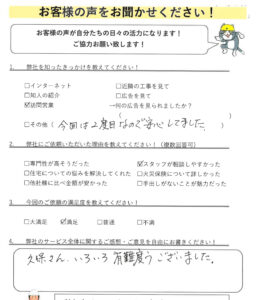 お客様の声をお聞かせください！
お客様の声が自分たちの日々の活力になります！
ご協力お願い致します！
1. 弊社を知ったきっかけを教えてください！
□インターネット □近隣の工事を見て
□知人の紹介 □広告を見て
☑訪問営業 →何の広告を見られましたか？
□その他（今回は2度目なので安心してました。）
2. 弊社にご依頼いただいた理由を教えてください！（複数回答可）
□専門性が高そうだった ☑スタッフが相談しやすかった
□住宅についての悩みを解決してくれた □火災保険について詳しかった
□他社様に比べ金額が安かった □手出しがないことが魅力だった
3. 今回のご依頼の満足度を教えてください！
□大満足 ☑満足 □普通 □不満
4. 弊社のサービス全体に関するご感想・ご意見を自由にお書きください！
久保さん、いろいろ有難度うございました。